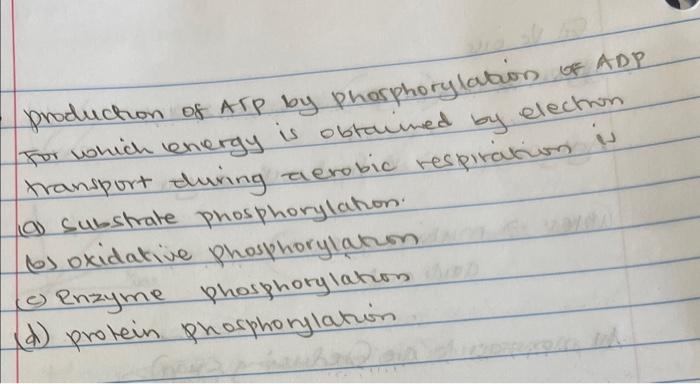 production of ATP by phosphorylation of ADP
For which energy is obtained by electron
transport during aerobic respiration is
(a) substrate phosphorylation.
(b) oxidative phosphorylation
(c) Enzyme phosphorylation
(d) protein phosphorylation